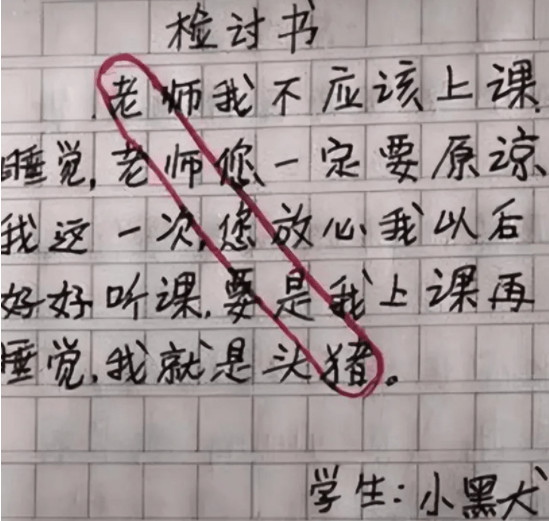 检讨书
老师我不应该上课
睡觉,老师您一定要原谅
我这一次,您放心我以后
好好听课,要是我上课再
睡觉,我就是头猪。
学生:小黑犬